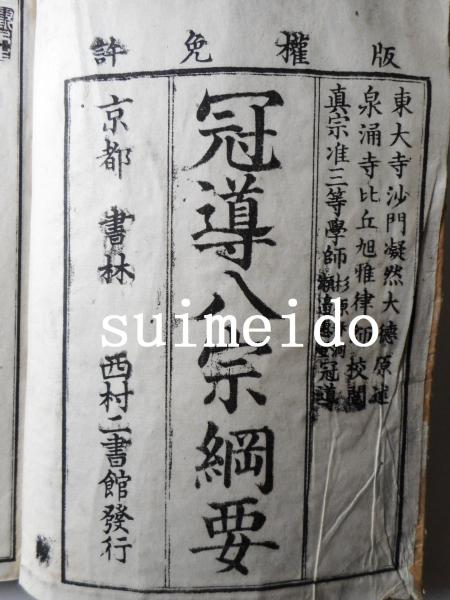 版權免許
東大寺沙門凝然大德原述
泉涌寺比丘旭雅律師校閲
真宗准三等學師
冠導
冠導八宗綱要
京都 書林 西村二書館發行
suimeido